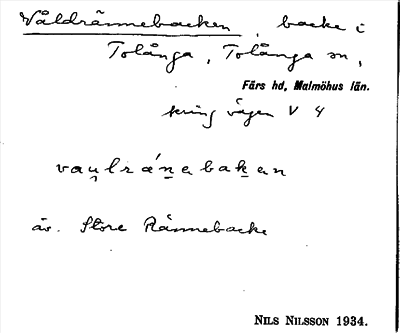 Våldrännebacken, backe i
Tolånga, Tolånga sn,
Färs hd, Malmöhus län.
kring vägen V 4
vau̯lránabakan
äv. Store Rännebacke
NILS NILSSON 1934.